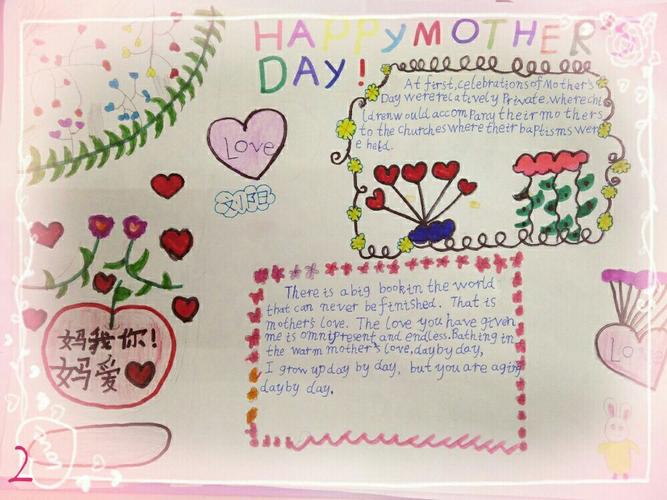 HAPPY MOTHER'S
DAY!
At first, celebrations of Mother's
Day were relatively Private, where chi
ldren would accom Pany their mothers
to the churches where their baptisms wer
e held.
Love
There is a big book in the world
that can never be finished. That is
mother's love. The love you have given
me is omnipresent and endless. Bathing in
the warm mother's love, day by day,
I grow up day by day, but you are aging
day by day.
妈我你!
妈爱
Lo
2